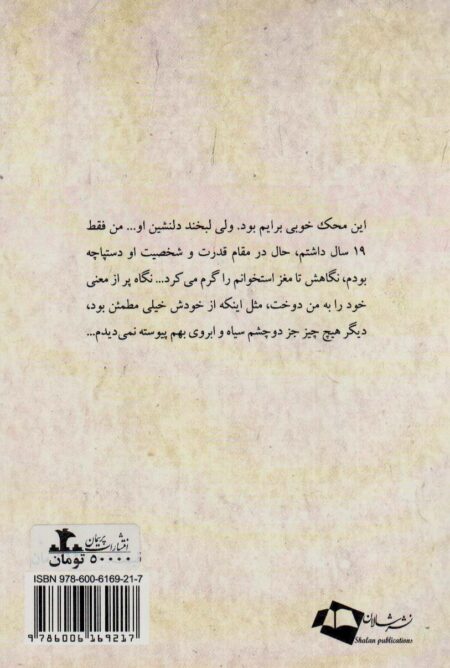 این محک خوبی برایم بود. ولی لبخند دلنشین او... من فقط
۱۹ سال داشتم، حال در مقام قدرت و شخصیت او دستپاچه
بودم، نگاهش تا مغز استخوانم را گرم می‌کرد... نگاه پر از معنی
خود را به من دوخت، مثل اینکه از خودش خیلی مطمئن بود،
دیگر هیچ چیز جز دوچشم سیاه و ابروی بهم پیوسته نمی‌دیدم...
انتشارات پریمان
۵۰۰۰۰۰ تومان
ISBN 978-600-6169-21-7
9 786006 169217
نشر شالان
Shalan publications